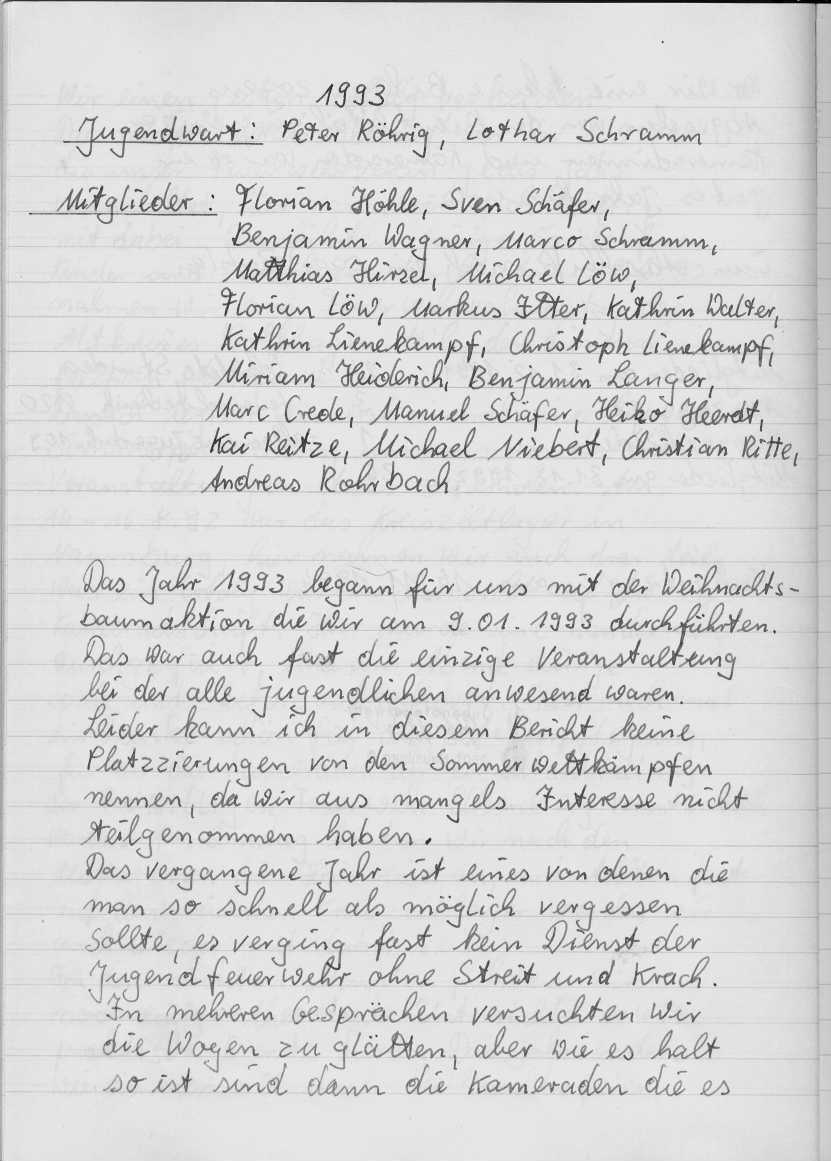 1993
Jugendwart: Peter Röhrig, Lothar Schramm
Mitglieder: Florian Höhle, Sven Schäfer,
Benjamin Wagner, Marco Schramm,
Matthias Hirzel, Michael Löw,
Florian Löw, Markus Itter, Kathrin Walter,
Kathrin Lienekampf, Christoph Lienekampf,
Miriam Heiderich, Benjamin Langer,
Marc Crede, Manuel Schäfer, Heiko Heerdt,
Kai Reitze, Michael Niebert, Christian Ritte,
Andreas Rohrbach
Das Jahr 1993 begann für uns mit der Weihnachts-
baumaktion die wir am 9.01.1993 durchführten.
Das war auch fast die einzige Veranstaltung
bei der alle jugendlichen anwesend waren.
Leider kann ich in diesem Bericht keine
Platzzierungen von den Sommerwettkämpfen
nennen, da wir aus mangels Interesse nicht
teilgenommen haben.
Das vergangene Jahr ist eines von denen die
man so schnell als möglich vergessen
sollte, es verging fast kein Dienst der
Jugendfeuerwehr ohne Streit und Krach.
In mehreren Gesprächen versuchten wir
die Wogen zu glätten, aber wie es halt
so ist sind dann die Kameraden die es